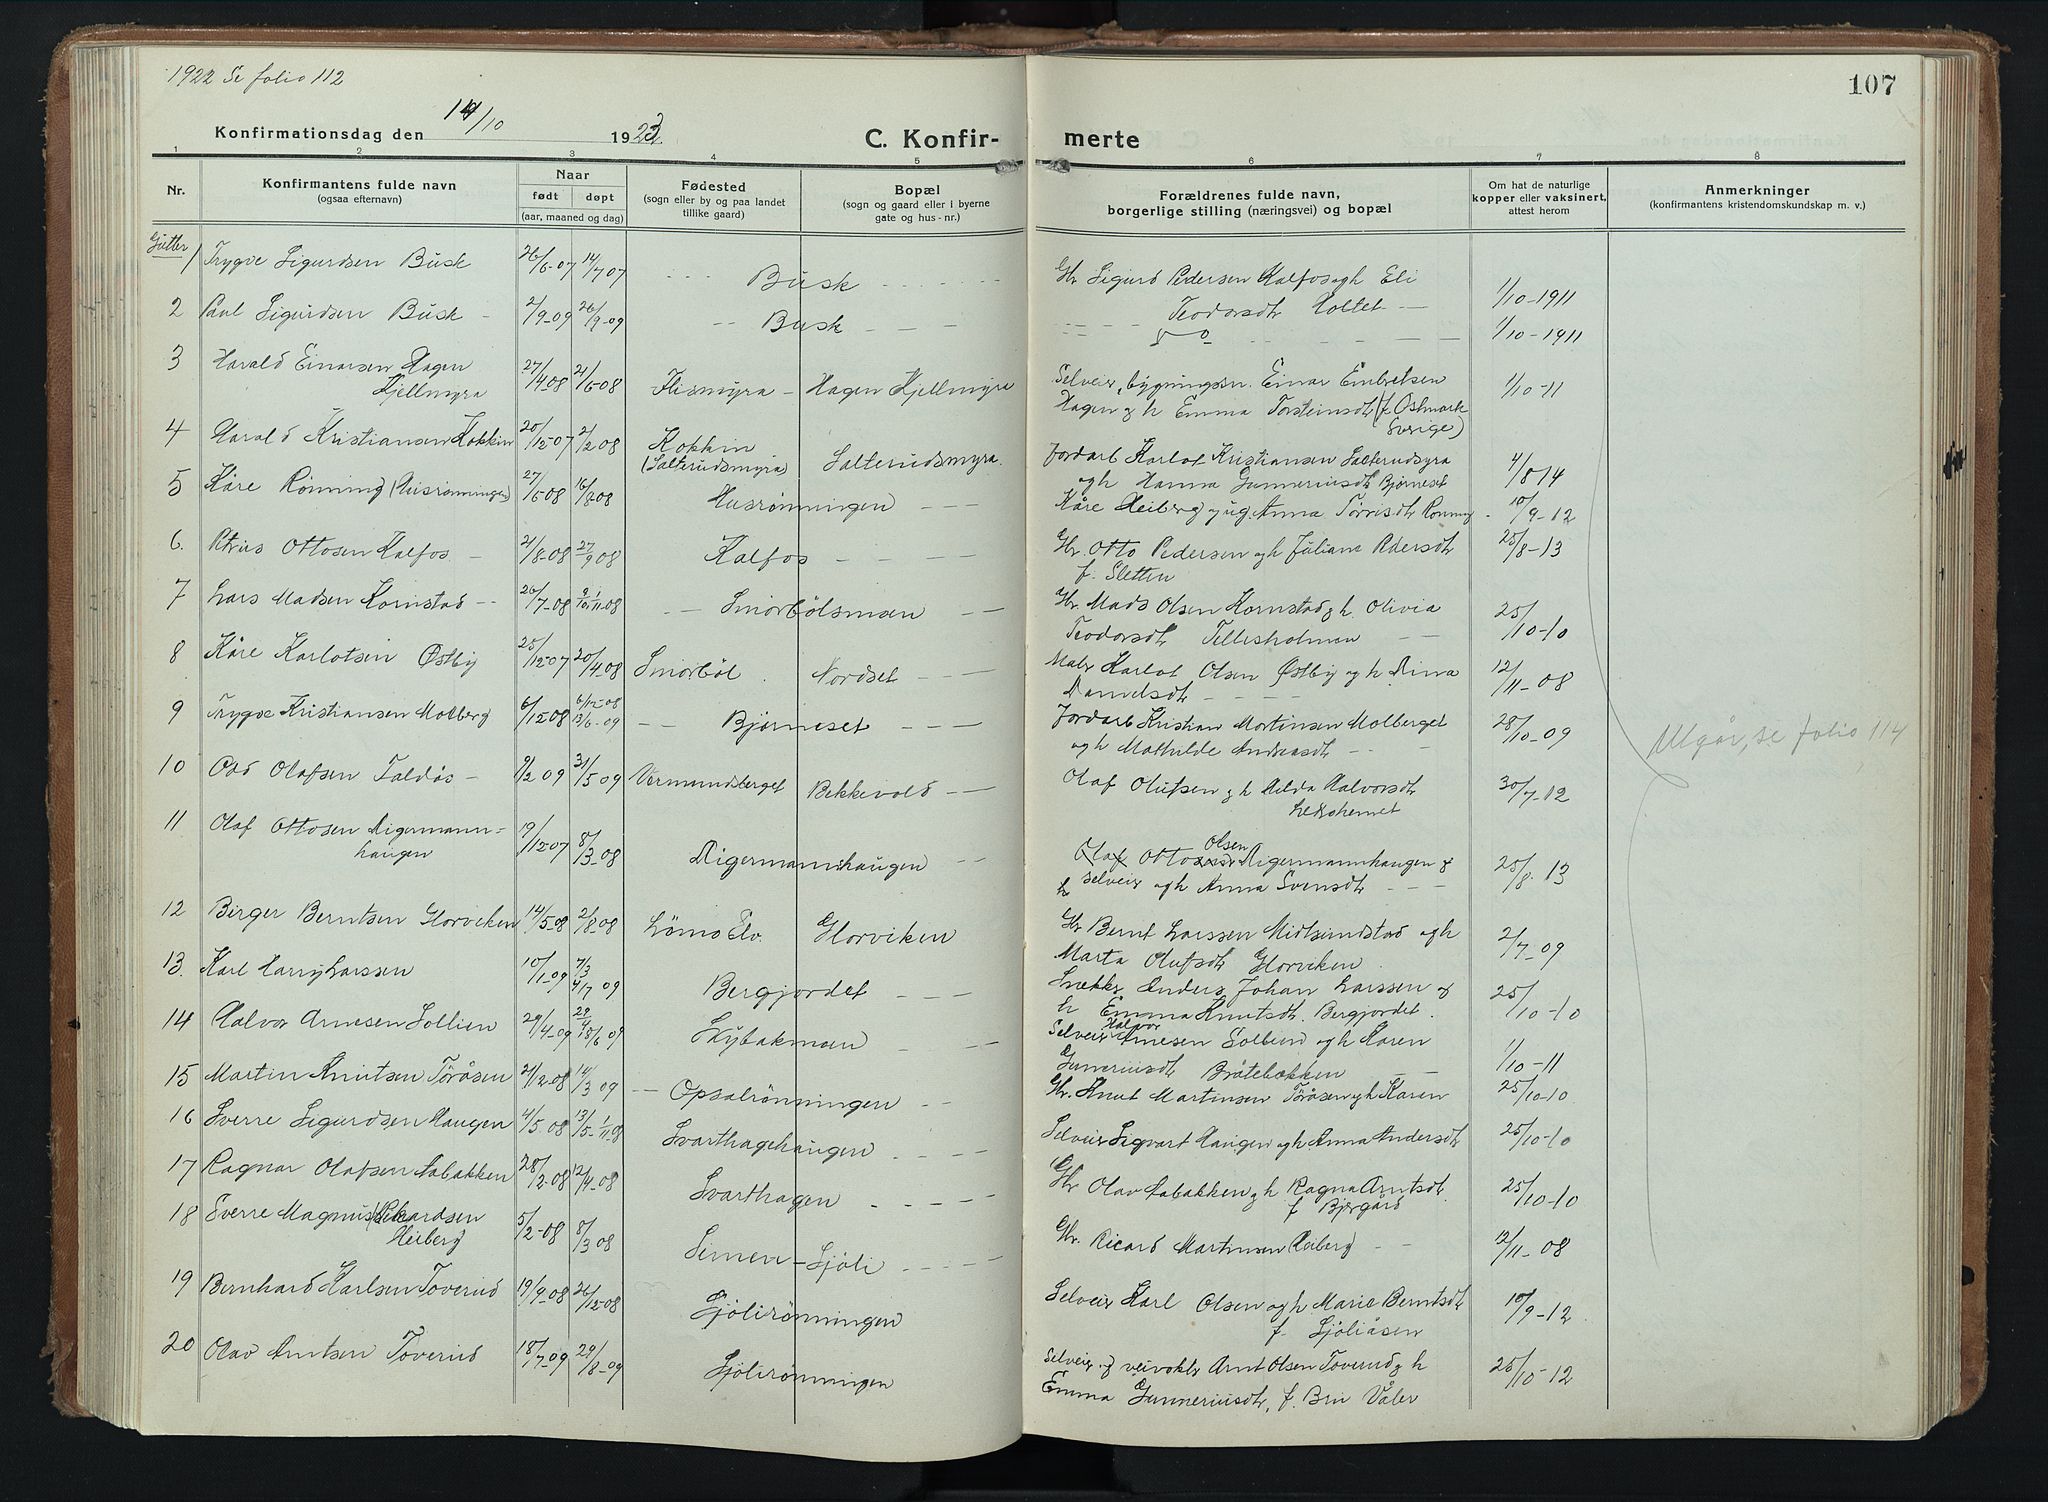 1922 Se folio 112
107
Konfirmationsdag den 14/10 1923
C. Konfirmerte
1 2 3 4 5 6 7 8
Nr.
Konfirmantens fulde navn
(ogsaa efternavn)
Naar
født døpt
(aar, maaned og dag)
Fødested
(sogn eller by og paa landet
tillike gaard)
Bopæl
(sogn og gaard eller i byerne
gate og hus-nr.)
Forældrenes fulde navn,
borgerlige stilling (næringsvei) og bopæl
Om hat de naturlige
kopper eller vaksinert,
attest herom
Anmerkninger
(konfirmantens kristendomskundskap m. v.)
Gutter
1 Trygve Sigurdsen Busk 26/6-07 14/7 07 Busk Gbr Sigurd Pedersen Kalfos og h Eli
Teodorsdtr Holtet 1/10-1911
2 Paul Sigurdsen Busk 2/9-09 26/9-09 Busk 1/10-1911
3 Harald Einarsen Hagen
Kjellmyra 27/4 08 21/6-08 Flismyra Hagen Kjellmyra Selveier, bygningssn. Einar Embretsen
Hagen og h Emma Torsteinsdtr (f Østmark
Sverige) 1/10-11
4 Harald Kristiansen Kokkin 20/12-07 2/2 08 Kokkin
(Salterudsmyra) Salterudsmyra. Jordarb Karlot Kristiansen Salterudsyra
og h Hanna Gunneriusdtr Bjørneset 4/8 14
5 Kåre Rönning (Husrønningen) 27/6-08 16/8 08 Husrønningen Kåre Heiberg og ug. Anna Torresdtr Rønning 10/9-12
6. Petrus Ottosen Kalfos 21/8-08 27/9 08 Kalfos Gbr. Otto Pedersen og h Juliane Pedersdtr
f. Sletten 25/8-13
7 Lars Madsen Kornstad 26/7-08 1/11-08 Smörbölsmoen Gbr. Mads Olsen Kornstad og h. Olivia
Teodorsdtr Tellesholmen 25/10-10
8 Kåre Karlotsen Østby 25/12-07 20/4-08 Smörböl Nordset Maler Karlot Olsen Østby og h Dina
Danielsdtr 12/11-08
9 Trygve Kristiansen Molberg 6/12-08 6/12-08
13/6-09 Bjørneset Jordarb Kristian Mortinsen Molberget
og h Mathilde Andreasdtr 28/10-09
10 Odd Olafsen Faldås 9/2 09 31/5 09 Vermundsberget Bekkevold Olaf Olufsen og h Hilda Halvorsdtr
30/7-12
11 Olaf Ottosen Digermann-
haugen 19/12 07 8/3-08 Digermannshaugen Olaf Otto Olsen Digermannhaugen og
h selveier og h Anna Svensdtr 25/8-13
12 Birger Berntsen Glorviken 14/5-08 2/8-08 Lömo Elv. Glorviken Gbr Bernt Larssen Midtsundstad og h
Marta Olufsdtr Glorviken 2/7-09
13. Karl Harry Larssen 10/1-09 7/3
4/7 09 Bergjordet Snekker Anders Johan Larssen og
h Emma Knutsdtr. Bergjordet. 25/10-10
14 Halvor Arnesen Sollien 29/4-09 29/4
18/6 09 Skybakmoen Selveier Halvor Arnesen Sollien og h Karen
Gunneriusdtr Bråtebakken 1/10-11
15 Martin Knutsen Töråsen 21/2 08 14/3 09 Opsalrönningen Gbr. Knut Martinsen Töråsen og h Karen 25/10-10
16 Sverre Sigurdsen Haugen 4/5-08 13/5- 1/11-08 Svarthagehaugen Selveier Sigvart Haugen og h Anna Andersdtr 25/10-10
17 Ragnar Olafsen Habakken 28/2-08 12/4-08 Svarthagen Gbr Olav Habakken og h Ragna Arntsdtr
f Bjergård 25/10-10
18 Sverre Magnus Rikardsen
Heiberg 5/2-08 8/3 08 Simen-Sjöli Gbr. Ricard Martinsen Heiberg 12/11-08
19 Bernhard Karlsen Toverud 19/9-08 26/12-08 Sjölirönningen Selveier Karl Olsen og h Marie Berntsdtr
f. Sjöliåsen 10/9-12
20 Olav Arntsen Toverud 18/7-09 29/8-09 Sjölirönningen Selveier og veivokter Arnt Olsen Toverud og h
Emma Gunneriusdtr, f. Bru Våler 25/10-12
Utgår, se folio 114